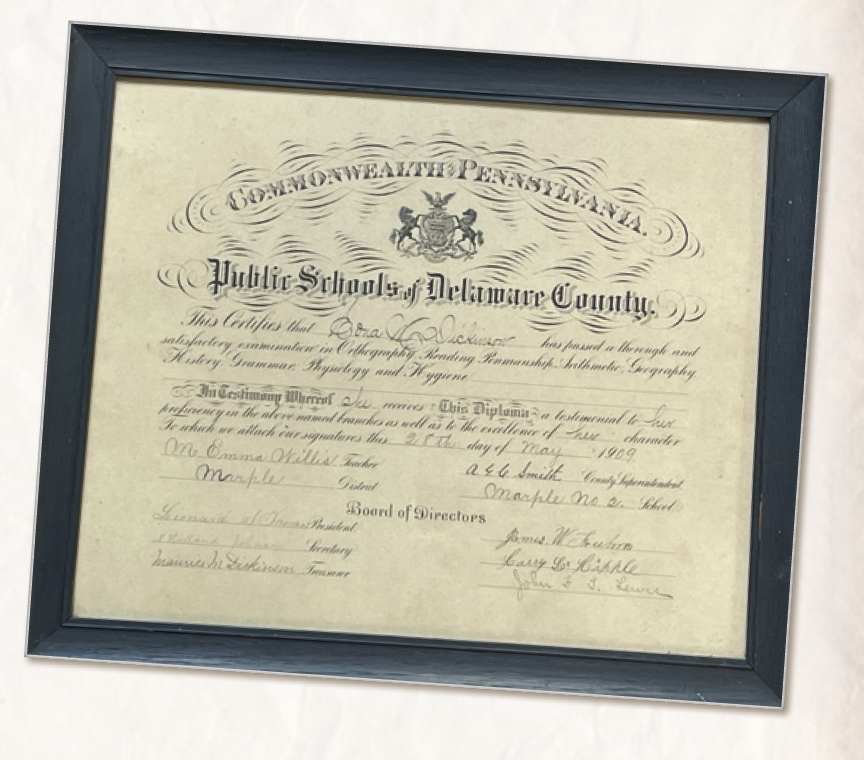 COMMONWEALTH OF PENNSYLVANIA.
Public Schools of Delaware County.
This Certifies that Edna W. Dickinson has passed a thorough and
satisfactory examination in Orthography, Reading, Penmanship, Arithmetic, Geography
History, Grammar, Physiology and Hygiene
In Testimony Whereof she receives This Diploma a testimonial to her
proficiency in the above named branches as well as to the excellence of her character
To which we attach our signatures this 28th day of May 1909
M. Emma Willis Teacher
A. G. C. Smith County Superintendent
Marple District
Marple No 2. School
Board of Directors
Leonard President
Secretary
Maurice M Dickinson Treasurer
James W
Harry L. Hipple
John F. T. Lewis